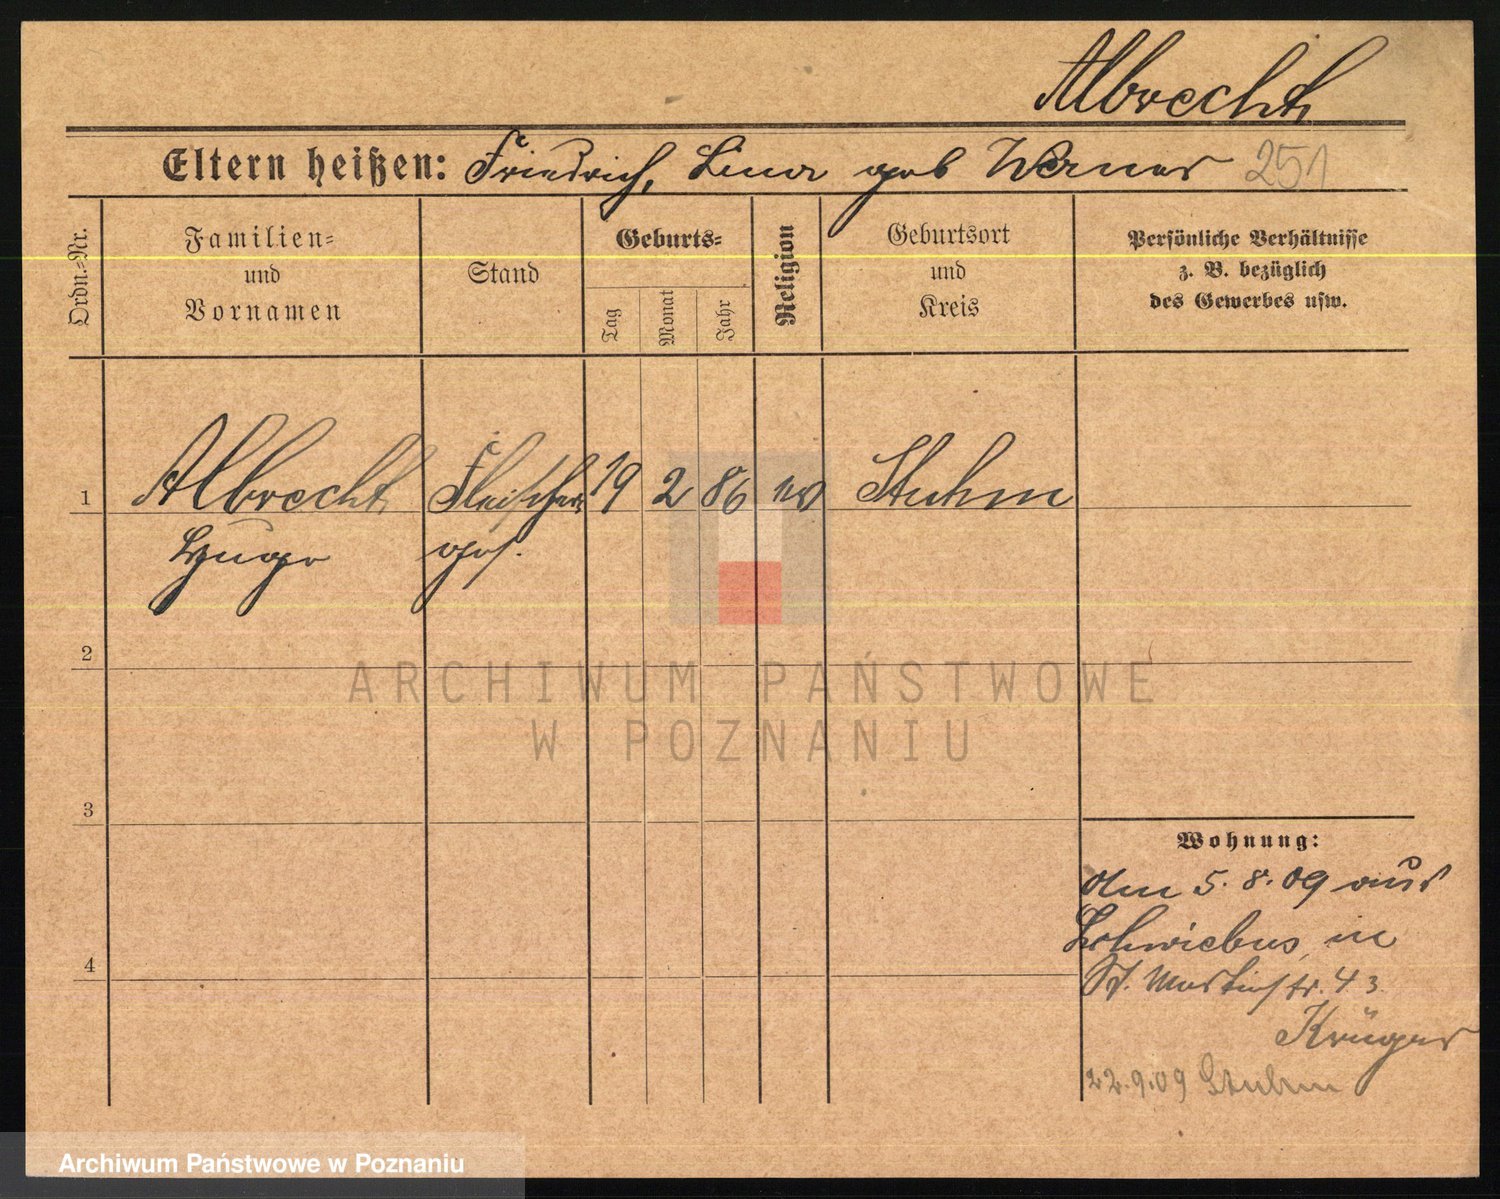 Albrecht
Eltern heißen: Friedrich, Lina geb Werner 251
Ordn.=Nr.
Familien=
und
Vornamen
Stand
Geburts=
Tag
Monat
Jahr
Religion
Geburtsort
und
Kreis
Persönliche Verhältnisse
z. B. bezüglich
des Gewerbes usw.
1 Albrecht Fleischer 19 2 86 ev Stuhm
Hugo ges.
2
ARCHIWUM PAŃSTWOWE
W POZNANIU
3
Wohnung:
den 5. 8. 09 aus
Schwiebus, in
4
St. Martinstr. 43.
Krüger
22.9.09 Stuhm
Archiwum Państwowe w Poznaniu